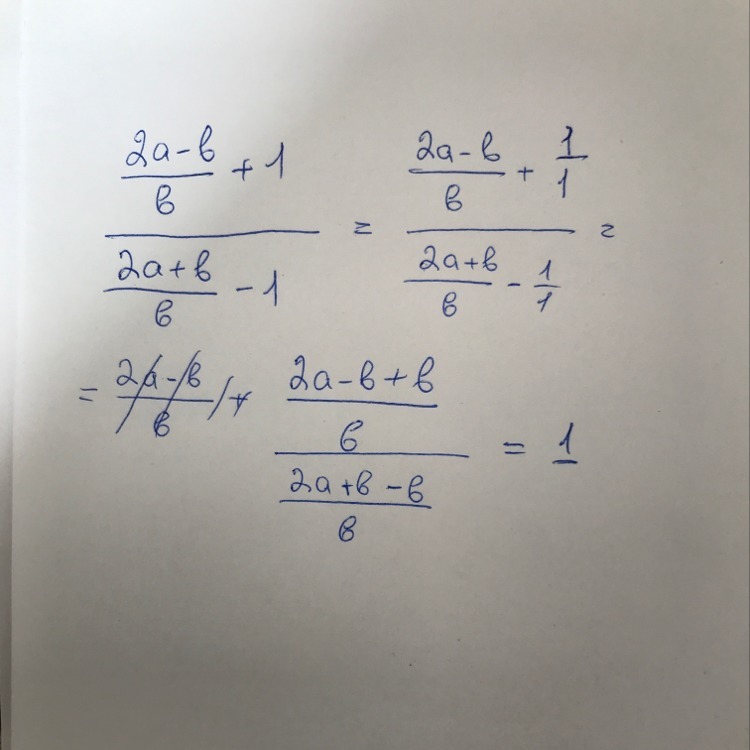 2a-b/b + 1 / 2a+b/b - 1 = 2a-b/b + 1/1 / 2a+b/b - 1/1 =
= 2a-b/b + 2a-b+b/b / 2a+b-b/b = 1